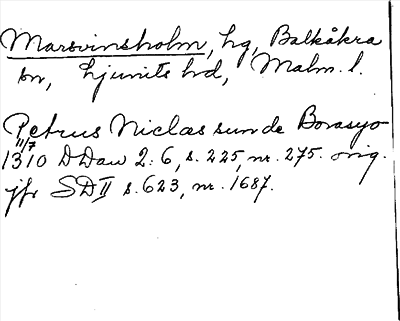 Marsvinsholm, hg, Balkåkra
sn, Ljunits hd, Malm. l.
Petrus Niclæssun de Borasyo
11/7
1310 DDan 2:6, s. 225, nr. 275. orig.
jfr SD II s. 623, nr. 1687.